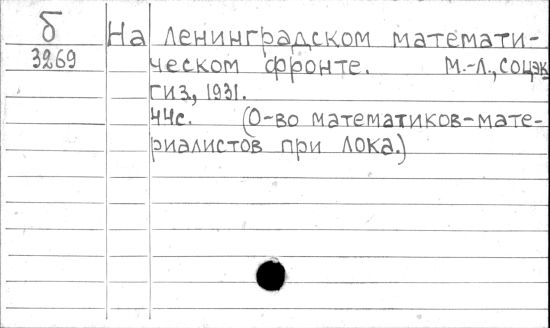 б На ленинградском математи-
3269 ческом фронте. М.-Л., соцэк
гиз, 1931.
44с. (О-во математиков-мате-
риалистов при ЛОКА.)